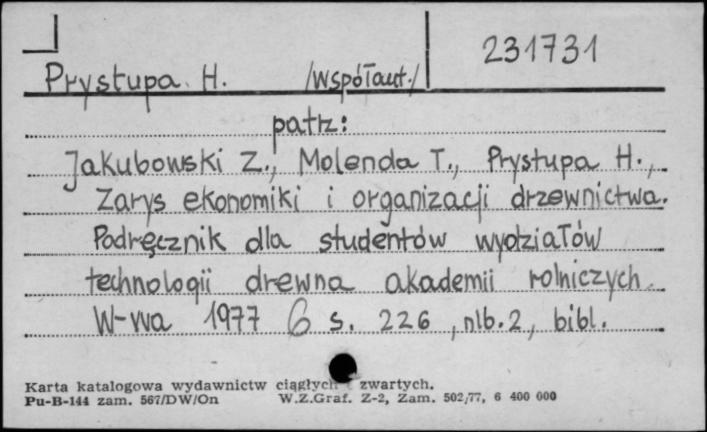 231731
Prystupa H. /współaut./
patrz:
Jakubowski Z., Molenda T., Prystupa H.,
Zarys ekonomiki i organizacji drzewnictwa.
Podręcznik dla studentów wydziałów
technologii drewna akademii rolniczych
W-wa 1977 s. 226, nlb. 2, bibl.
Karta katalogowa wydawnictw ciągłych i zwartych.
Pu-B-144 zam. 567/DW/On W.Z.Graf. Z-2, Zam. 502/77, 6 400 000